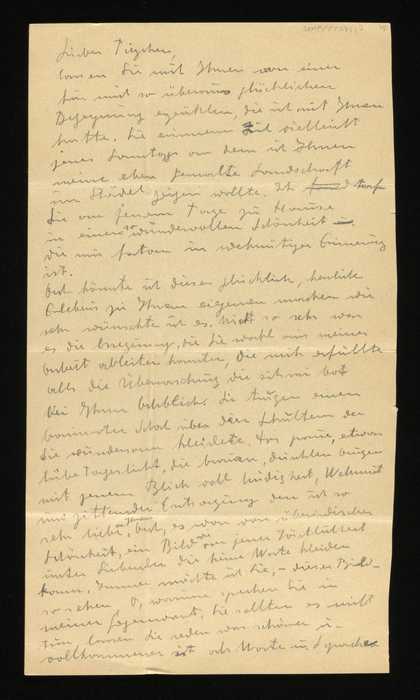 Lieber Piepchen,
lassen Sie mich Ihnen von einer
für mich so überaus glücklichen
Begegnung erzählen, die ich mit Ihnen
hatte. Sie erinnern sich vielleicht
jenes Sonntags an dem ich Ihnen
meine eben gemalte Landschaft
im Städel zeigen wollte. Ich traf
Sie an jenem Tage zu Hause
in einer so wundervollen Schönheit
die mir fortan in wehmütiger Erinnerung
ist.
Und könnte ich dieses glücklich, herrliche
Erlebnis zu Ihrem eigenen machen wie
sehr wünschte ich es. Nicht so sehr war
es die Begegnung, die Sie wohl aus meiner
ableiten konnten, die mich erfüllte
als die Überraschung die sich mir bot
bei Ihrem Anblick. Sie trugen einen
Schal über den Schultern der
Sie wundersam kleidete. Das graue, etwas
trübe Tageslicht, die braunen, dunklen Augen
mit jenem Blick voll Güte, Wehmut
und zitternder Entsagung den ich so
sehr liebe, es war von überirdischer
Schönheit, ein Bild von jener Zärtlichkeit
unter Liebenden die keine Worte kleiden
kann. Immer möchte ich Sie, – dieses Bild –
so sehen. O, warum sprechen Sie in
meiner Gegenwart, Sie sollten es nicht
tun lassen Sie reden was schöner u.
vollkommener ist als Worte und Sprache